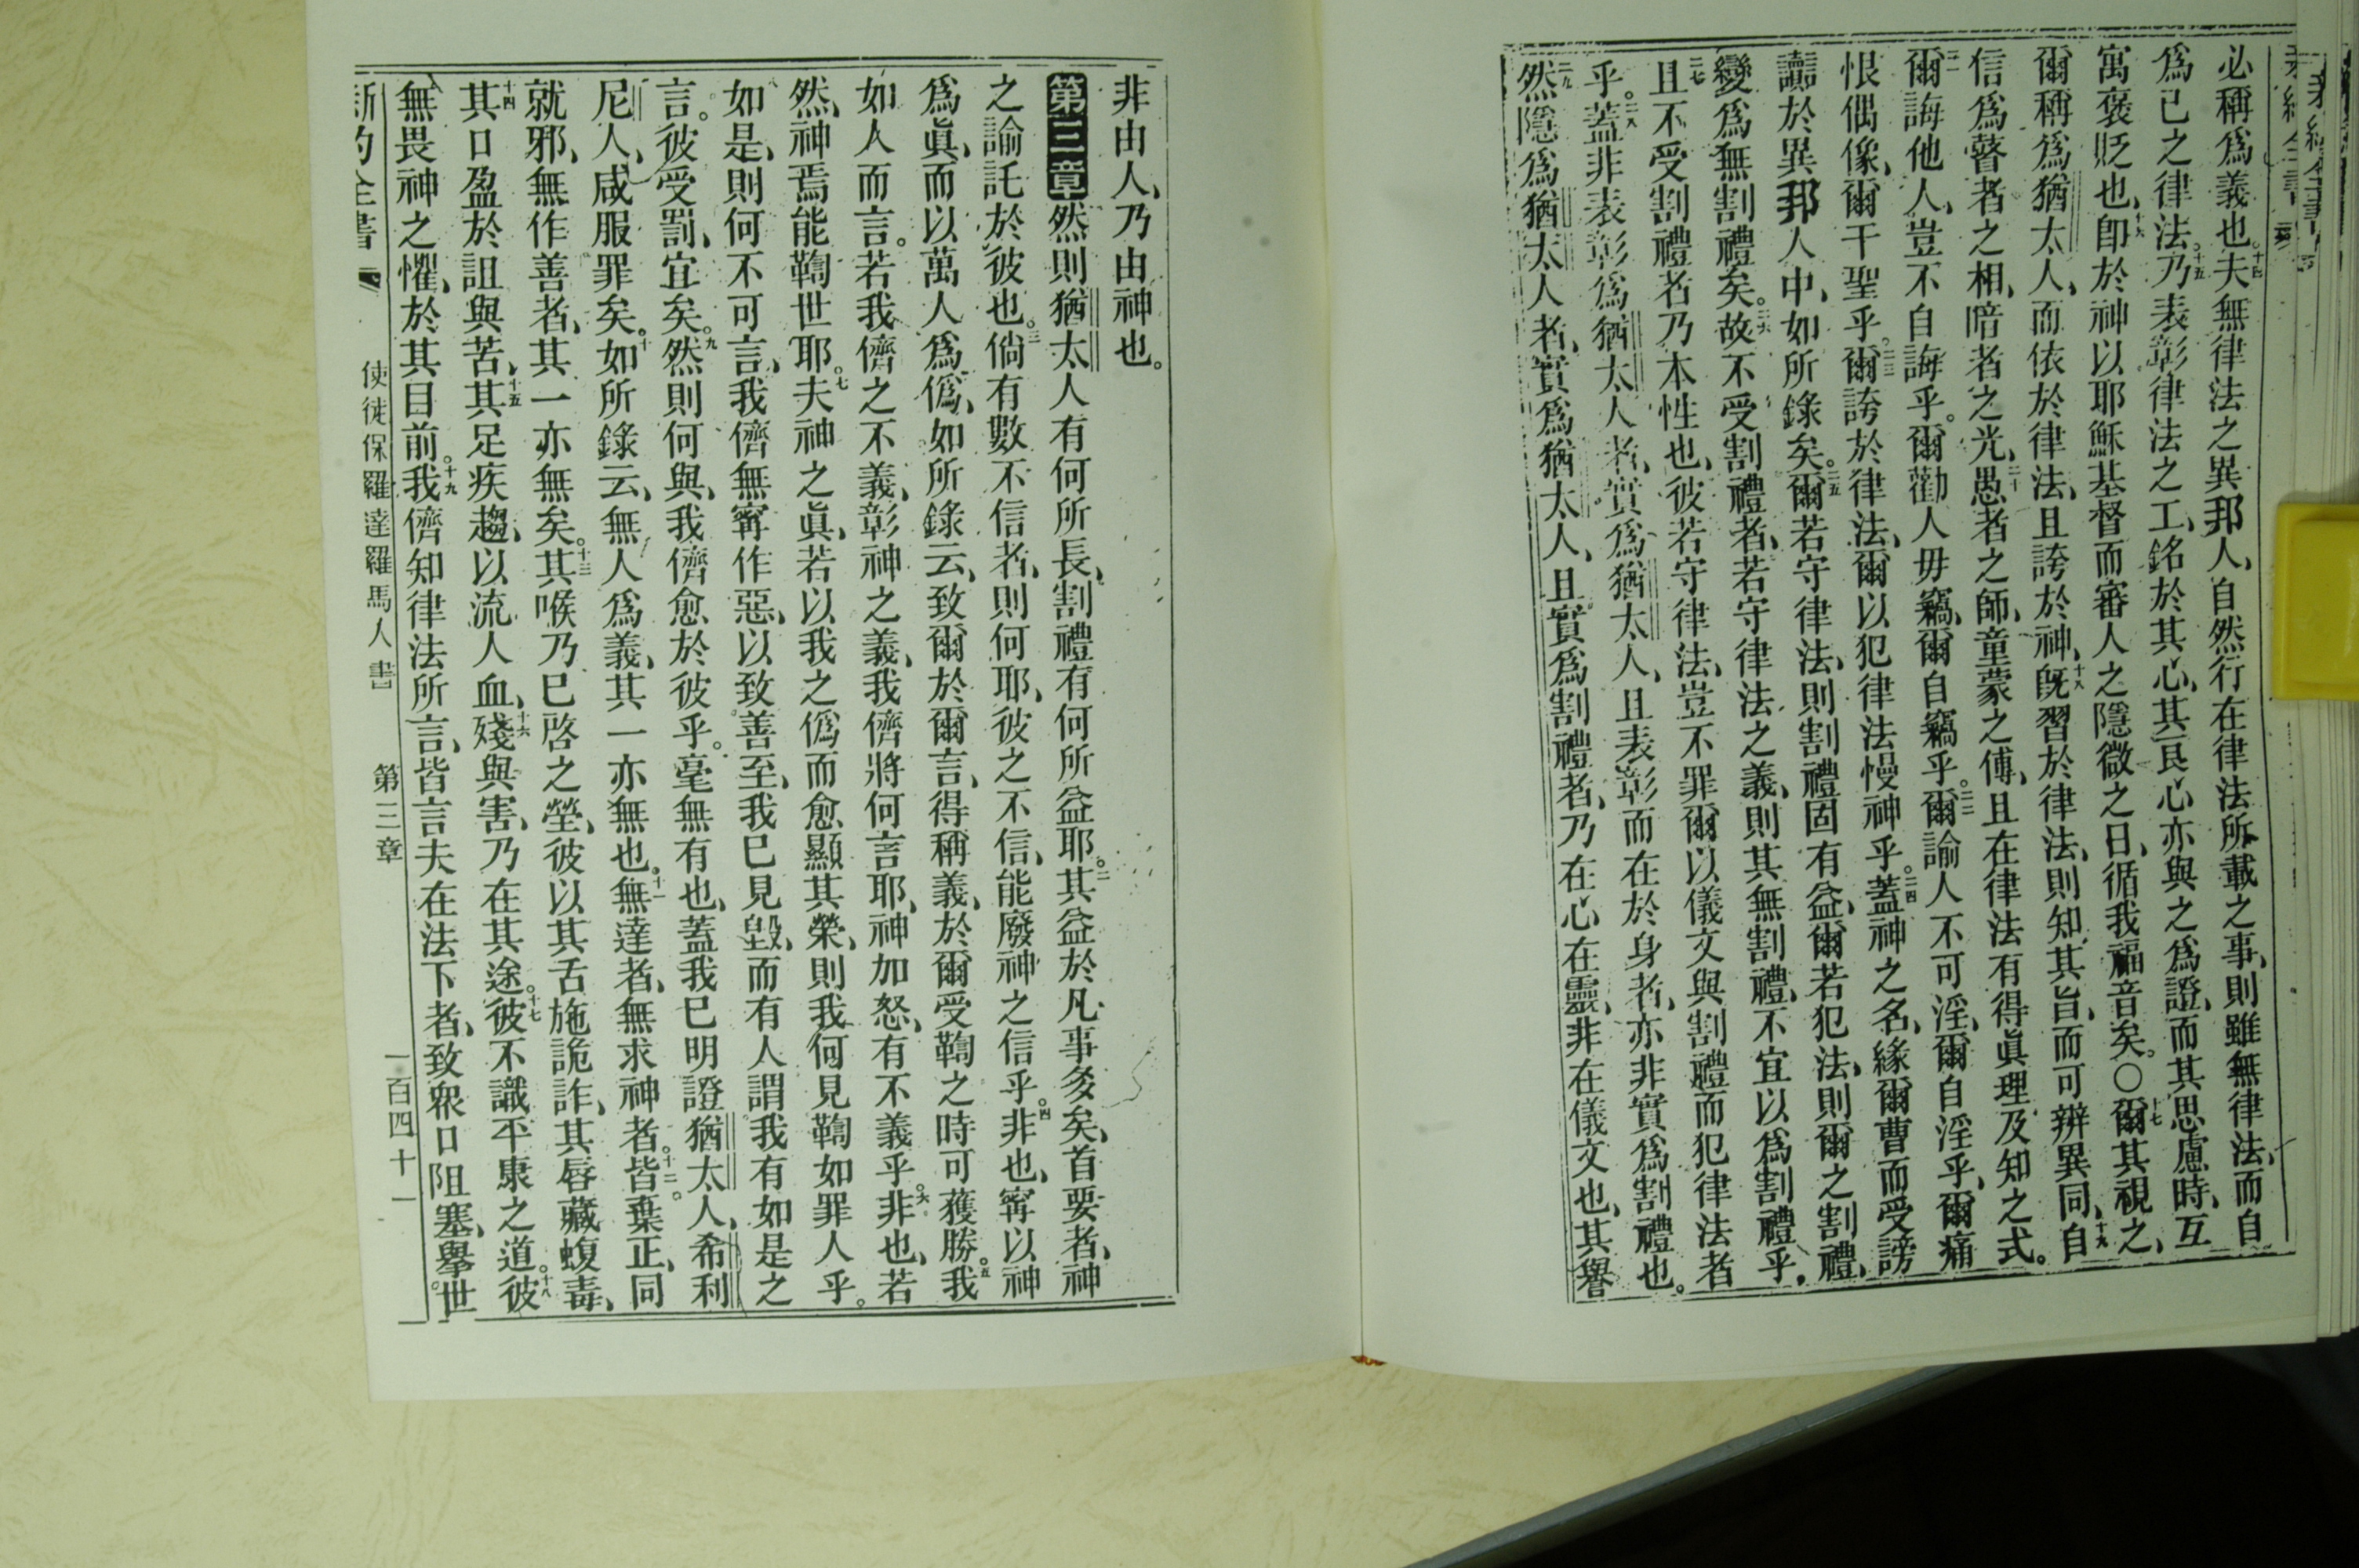 必稱爲義也。十四夫無律法之異邦人、自然行在律法所載之事、則雖無律法、而自
爲已之律法。十五乃表彰律法之工、銘於其心、其良心亦與之爲證、而其思慮時、互
寓褒貶也、十六卽於神以耶穌基督而審人之隱微之日、循我福音矣。〇十七爾其視之、
爾稱爲猶太人、而依於律法、且誇於神、十八旣習於律法、則知其旨、而可辨異同、十九自
信爲瞽者之相、暗者之光、二十愚者之師、童蒙之傅、且在律法有得眞理及知之式。
爾誨他人、豈不自誨乎。爾勸人毋竊、爾自竊乎。二二爾諭人不可淫、爾自淫乎、爾痛
恨偶像、爾干聖乎。二三爾誇於律法、爾以犯律法慢神乎。二四蓋神之名、緣爾曹而受謗
讟於異邦人中、如所錄矣。二五爾若守律法、則割禮固有益、爾若犯法、則爾之割禮、
變爲無割禮矣。二六故不受割禮者、若守律法之義、則其無割禮、不宜以爲割禮乎、
二七且不受割禮者乃本性也、彼若守律法、豈不罪爾以儀文與割禮而犯律法者
乎。二八蓋非表彰爲猶太人者、實爲猶太人、且表彰而在於身者、亦非實爲割禮也。
二九然隱爲猶太人者、實爲猶太人、且實爲割禮者、乃在心在靈、非在儀文也、其譽
非由人、乃由神也。
第三章然則猶太人有何所長、割禮有何所益耶。二其益於凡事多矣、首要者、神
之諭託於彼也。三倘有數不信者、則何耶、彼之不信、能廢神之信乎。四非也、寗以神
爲眞、而以萬人爲僞、如所錄云、致爾於爾言、得稱義、於爾受鞫之時可獲勝。五我
如人而言。若我儕之不義、彰神之義、我儕將何言耶、神加怒、有不義乎。六非也、若
然、神焉能鞫世耶。七夫神之眞、若以我之僞而愈顯其榮、則我何見鞫如罪人乎。
八如是、則何不可言、我儕無寗作惡、以致善至、我已見毀、而有人謂我有如是之
言。彼受罰、宜矣。九然則何與、我儕愈於彼乎。毫無有也、蓋我已明證猶太人、希利
尼人、咸服罪矣。十如所錄云、無人爲義、其一亦無也。十一無達者、無求神者。十二皆棄正、同
就邪、無作善者、其一亦無矣。十三其喉乃已啓之塋、彼以其舌施詭詐、其唇藏蝮毒、
十四其口盈於詛與苦、十五其足疾趨、以流人血、十六殘與害、乃在其途。十七彼不識平康之道。十八彼
無畏神之懼、於其目前。十九我儕知律法所言、皆言夫在法下者、致衆口阻塞、擧世
新約全書 使徒保羅達羅馬人書 第三章 一百四十一